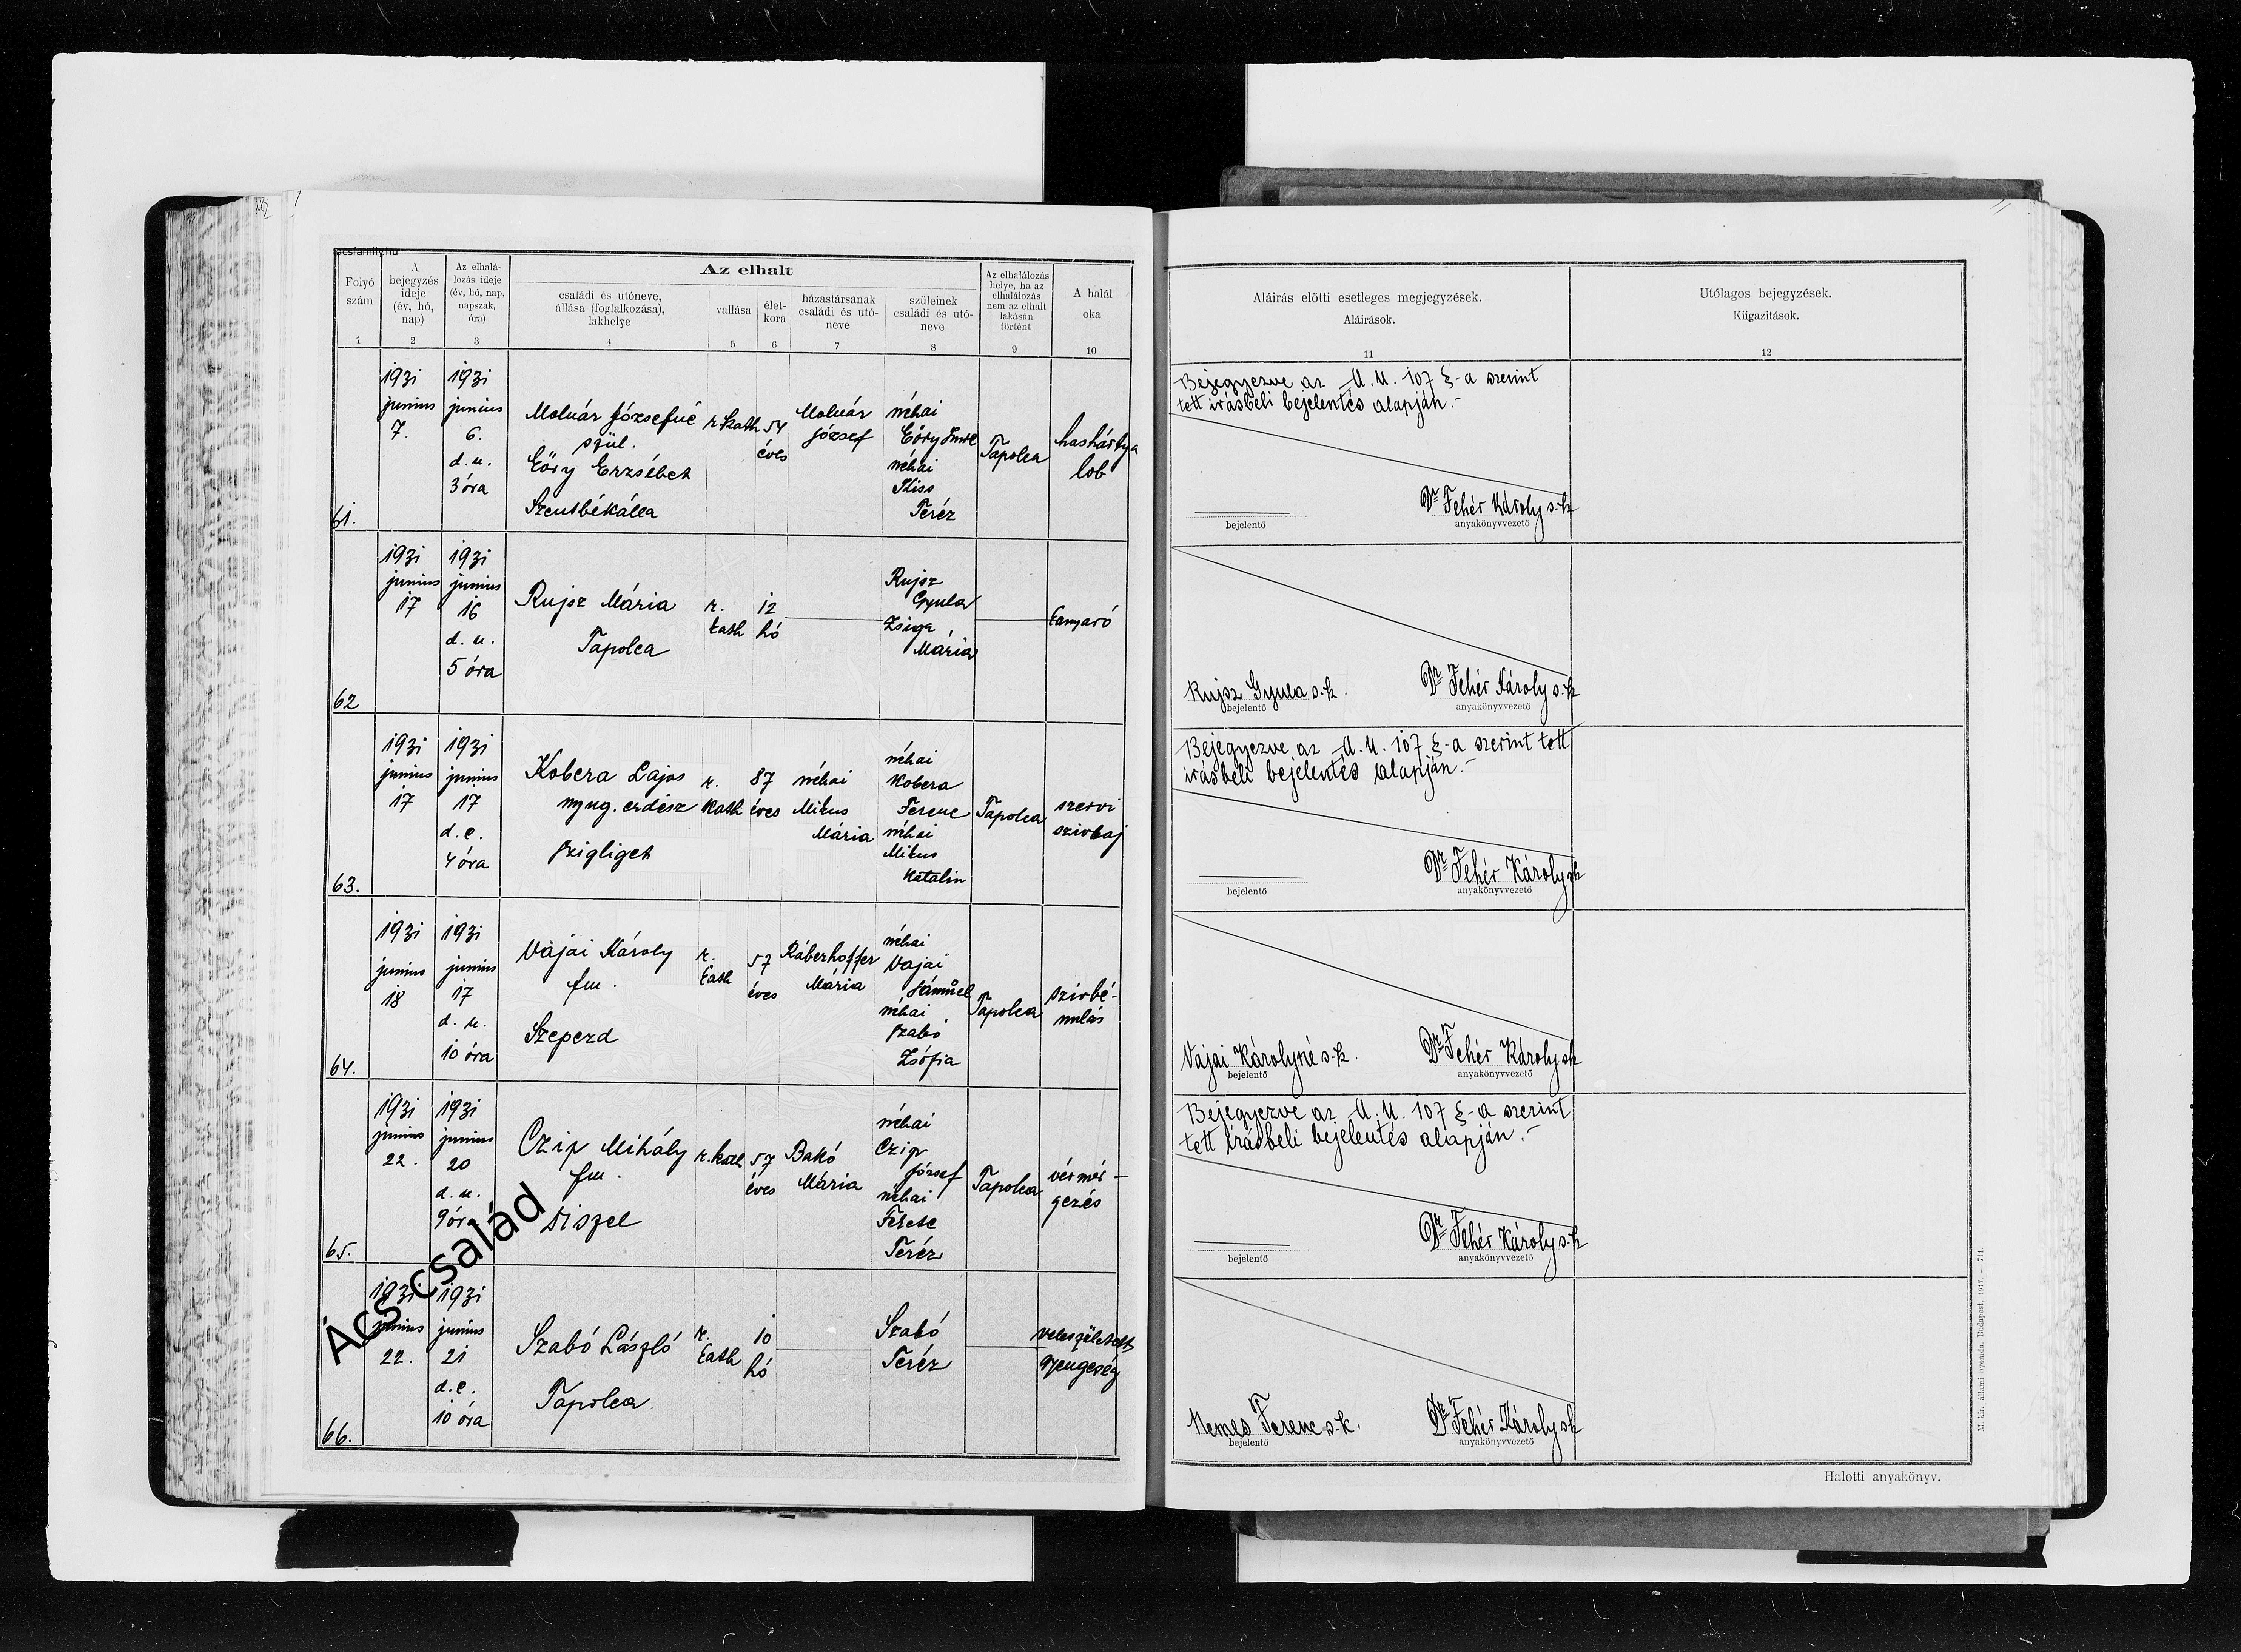 acsfamily.hu
Folyó szám
A bejegyzés ideje (év, hó, nap)
Az elhalálozás ideje (év, hó, nap, napszak, óra)
Az elhalt
családi és utóneve, állása (foglalkozása), lakhelye
vallása
életkora
házastársának családi és utóneve
szüleinek családi és utóneve
Az elhalálozás helye, ha az elhalálozás nem az elhalt lakásán történt
A halál oka
1 2 3 4 5 6 7 8 9 10
61.
1931 junius 7.
1931 junius 6. d. u. 3 óra
Molnár Józsefné
szül.
Eőry Erzsébet
Szentbékálla
r. kath
54 éves
Molnár József
néhai Eőry Imre
néhai Kiss Teréz
Tapolca
hashártya lob
62
1931 junius 17
1931 junius 16 d. u. 5 óra
Rujsz Mária
Tapolca
r. kath
12 hó
Rujsz Gyula
Zsiga Mária
kanyaró
63.
1931 junius 17
1931 junius 17 d. e. 4 óra
Kobera Lajos
nyug. erdész
Szigliget
r. kath
87 éves
néhai Mikus Mária
néhai Kobera Ferenc
néhai Mikus Katalin
Tapolca
szervi szivbaj
64.
1931 junius 18
1931 junius 17 d. u. 10 óra
Vajai Károly
fm.
Szepezd
r. kath
57 éves
Ráberhoffer Mária
néhai Vajai Sámuel
néhai Szabó Zsófia
Tapolca
szivbénulás
65.
1931 junius 22.
1931 junius 20 d. u. 9 óra
Czip Mihály
fm.
Diszel
r. kath
57 éves
Bakó Mária
néhai Czip József
néhai Fekete Teréz
Tapolca
vérmérgezés
66.
1931 junius 22.
1931 junius 21 d. e. 10 óra
Szabó László
Tapolca
r. kath
10 hó
Szabó Teréz
veleszületett gyengeség
Ács család
Aláirás előtti esetleges megjegyzések.
Aláirások.
11
Utólagos bejegyzések.
Kiigazitások.
12
Bejegyezve az A. U. 107 §-a szerint
tett irásbeli bejelentés alapján.-
Dr Fehér Károly s.k
bejelentő
anyakönyvvezető
Rujsz Gyula s.k.
Dr Fehér Károly s.k
bejelentő
anyakönyvvezető
Bejegyezve az A. U. 107 §-a szerint tett
irásbeli bejelentés alapján.-
Dr Fehér Károly sk
bejelentő
anyakönyvvezető
Vajai Károlyné s.k.
Dr Fehér Károly sk
bejelentő
anyakönyvvezető
Bejegyezve az A. U. 107 §-a szerint
tett irásbeli bejelentés alapján.-
Dr Fehér Károly s.k
bejelentő
anyakönyvvezető
Nemes Ferenc s.k.
Dr Fehér Károly sk
bejelentő
anyakönyvvezető
M. kir. állami nyomda. Budapest, 1917. — 711.
Halotti anyakönyv.